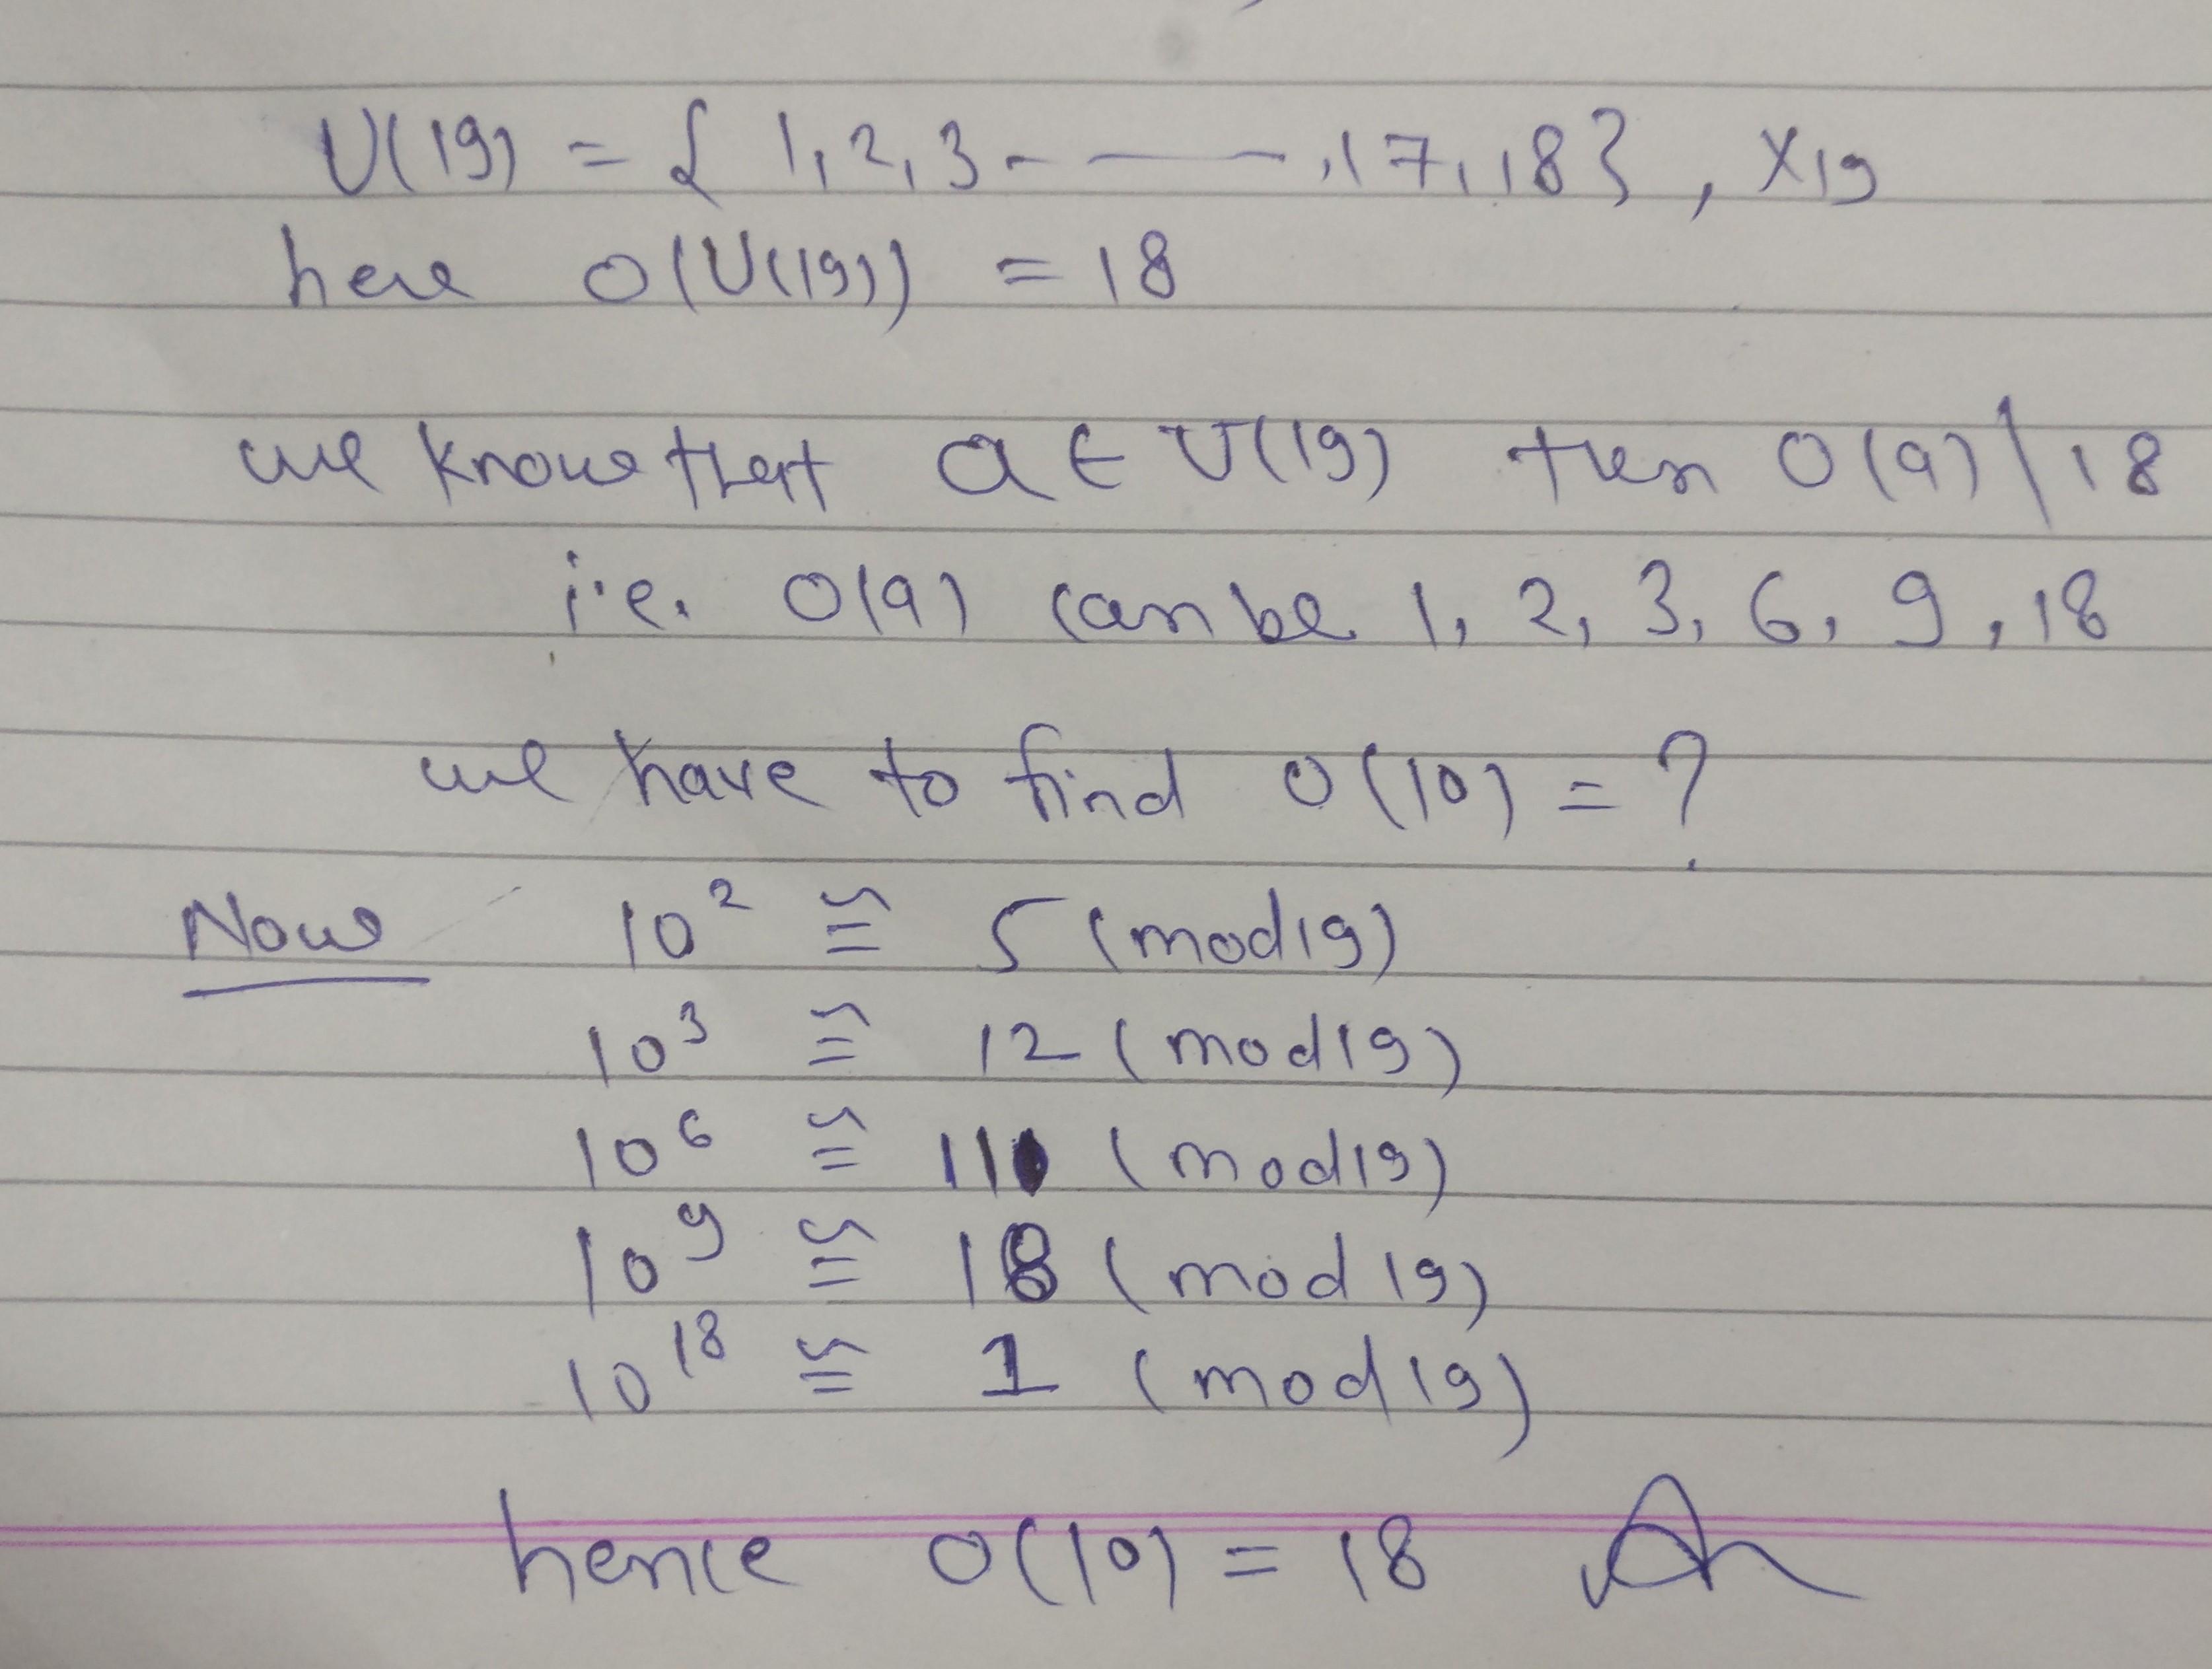 U(19) = { 1, 2, 3 - — , 17, 18 } , X19
here O(U(19)) = 18
we know that a ∈ U(19) then O(a) | 18
i.e. O(a) can be 1, 2, 3, 6, 9, 18
we have to find O(10) = ?
Now 10² ≅ 5 (mod 19)
10³ ≅ 12 (mod 19)
10⁶ ≅ 11 (mod 19)
10⁹ ≅ 18 (mod 19)
10¹⁸ ≅ 1 (mod 19)
hence O(10) = 18